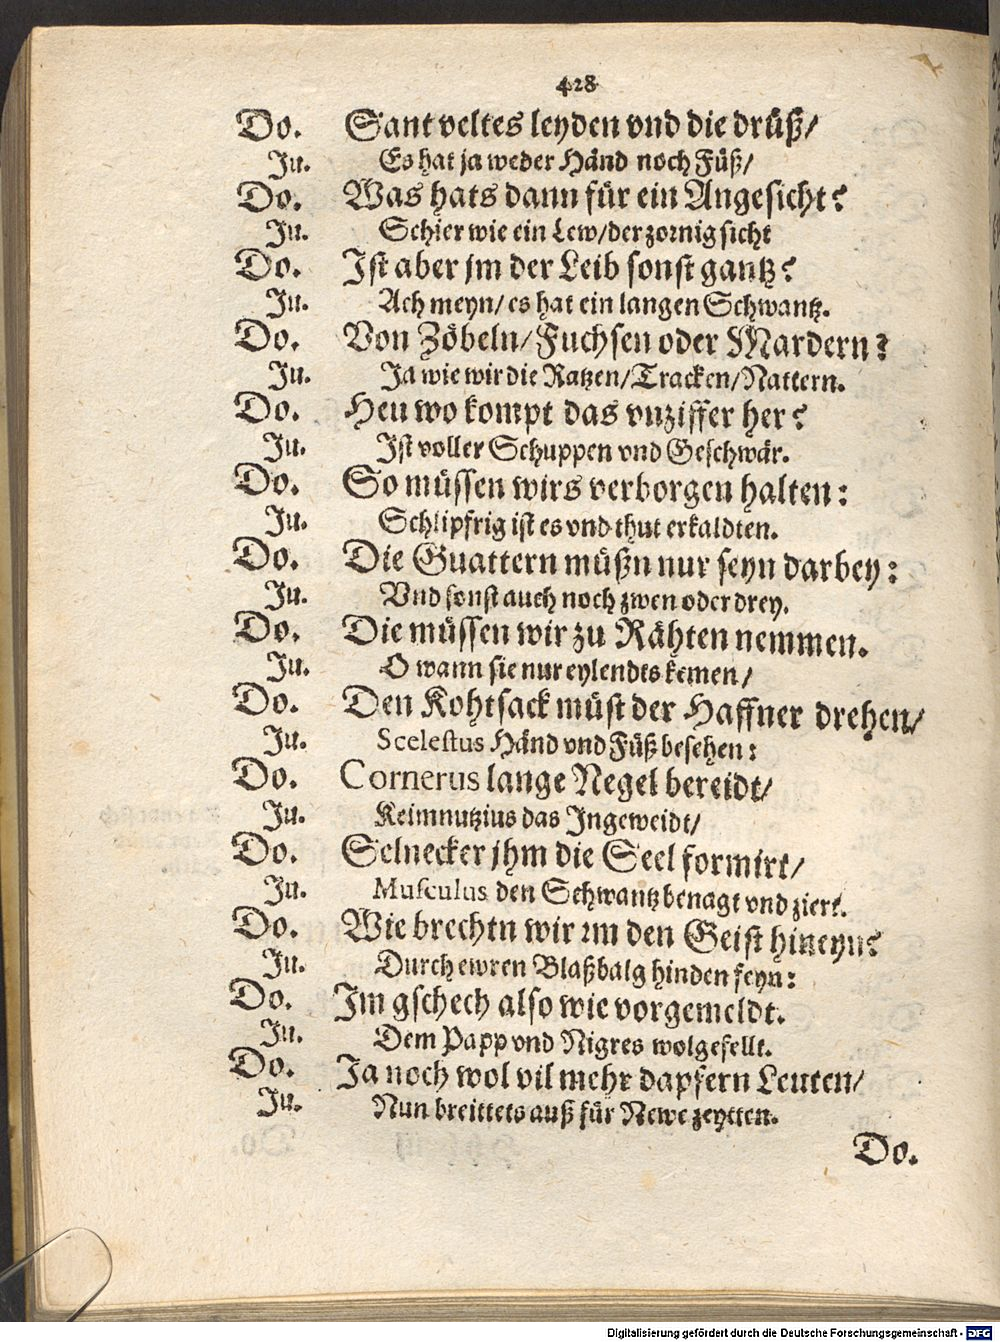 428
Do. Sant veltes leyden vnd die drüß/
Ju. Es hat ja weder Händ noch Füß/
Do. Was hats dann für ein Angesicht?
Ju. Schier wie ein Lew/der zornig sicht
Do. Ist aber jm der Leib sonst gantz?
Ju. Ach meyn/ es hat ein langen Schwantz.
Do. Von Zöbeln/Fuchsen oder Mardern?
Ju. Ja wie wir die Ratzen/Tracken/Nattern.
Do. Heu wo kompt das vnziffer her?
Ju. Ist voller Schuppen vnd Geschwär.
Do. So müssen wirs verborgen halten:
Ju. Schlipfrig ist es vnd thut erkaldten.
Do. Die Guattern müßn nur seyn darbey:
Ju. Vnd sonst auch noch zwen oder drey.
Do. Die müssen wir zu Rähten nemmen.
Ju. O wann sie nur eylendts kemen/
Do. Den Kohtsack müst der Haffner drehen/
Ju. Scelestus Händ vnd Füß besehen:
Do. Cornerus lange Negel bereidt/
Ju. Keimnutzius das Ingeweidt/
Do. Selnecker jhm die Seel formirt/
Ju. Musculus den Schwantz benagt vnd ziert.
Do. Wie brechtn wir im den Geist hineyn?
Ju. Durch ewren Blaßbalg hinden feyn:
Do. Im gschech also wie vorgemeldt.
Ju. Dem Papp vnd Nigres wolgefellt.
Do. Ja noch wol vil mehr dapfern Leuten/
Ju. Nun breittets auß für Newe zeytten.
Do.
Digitalisierung gefördert durch die Deutsche Forschungsgemeinschaft - DFG